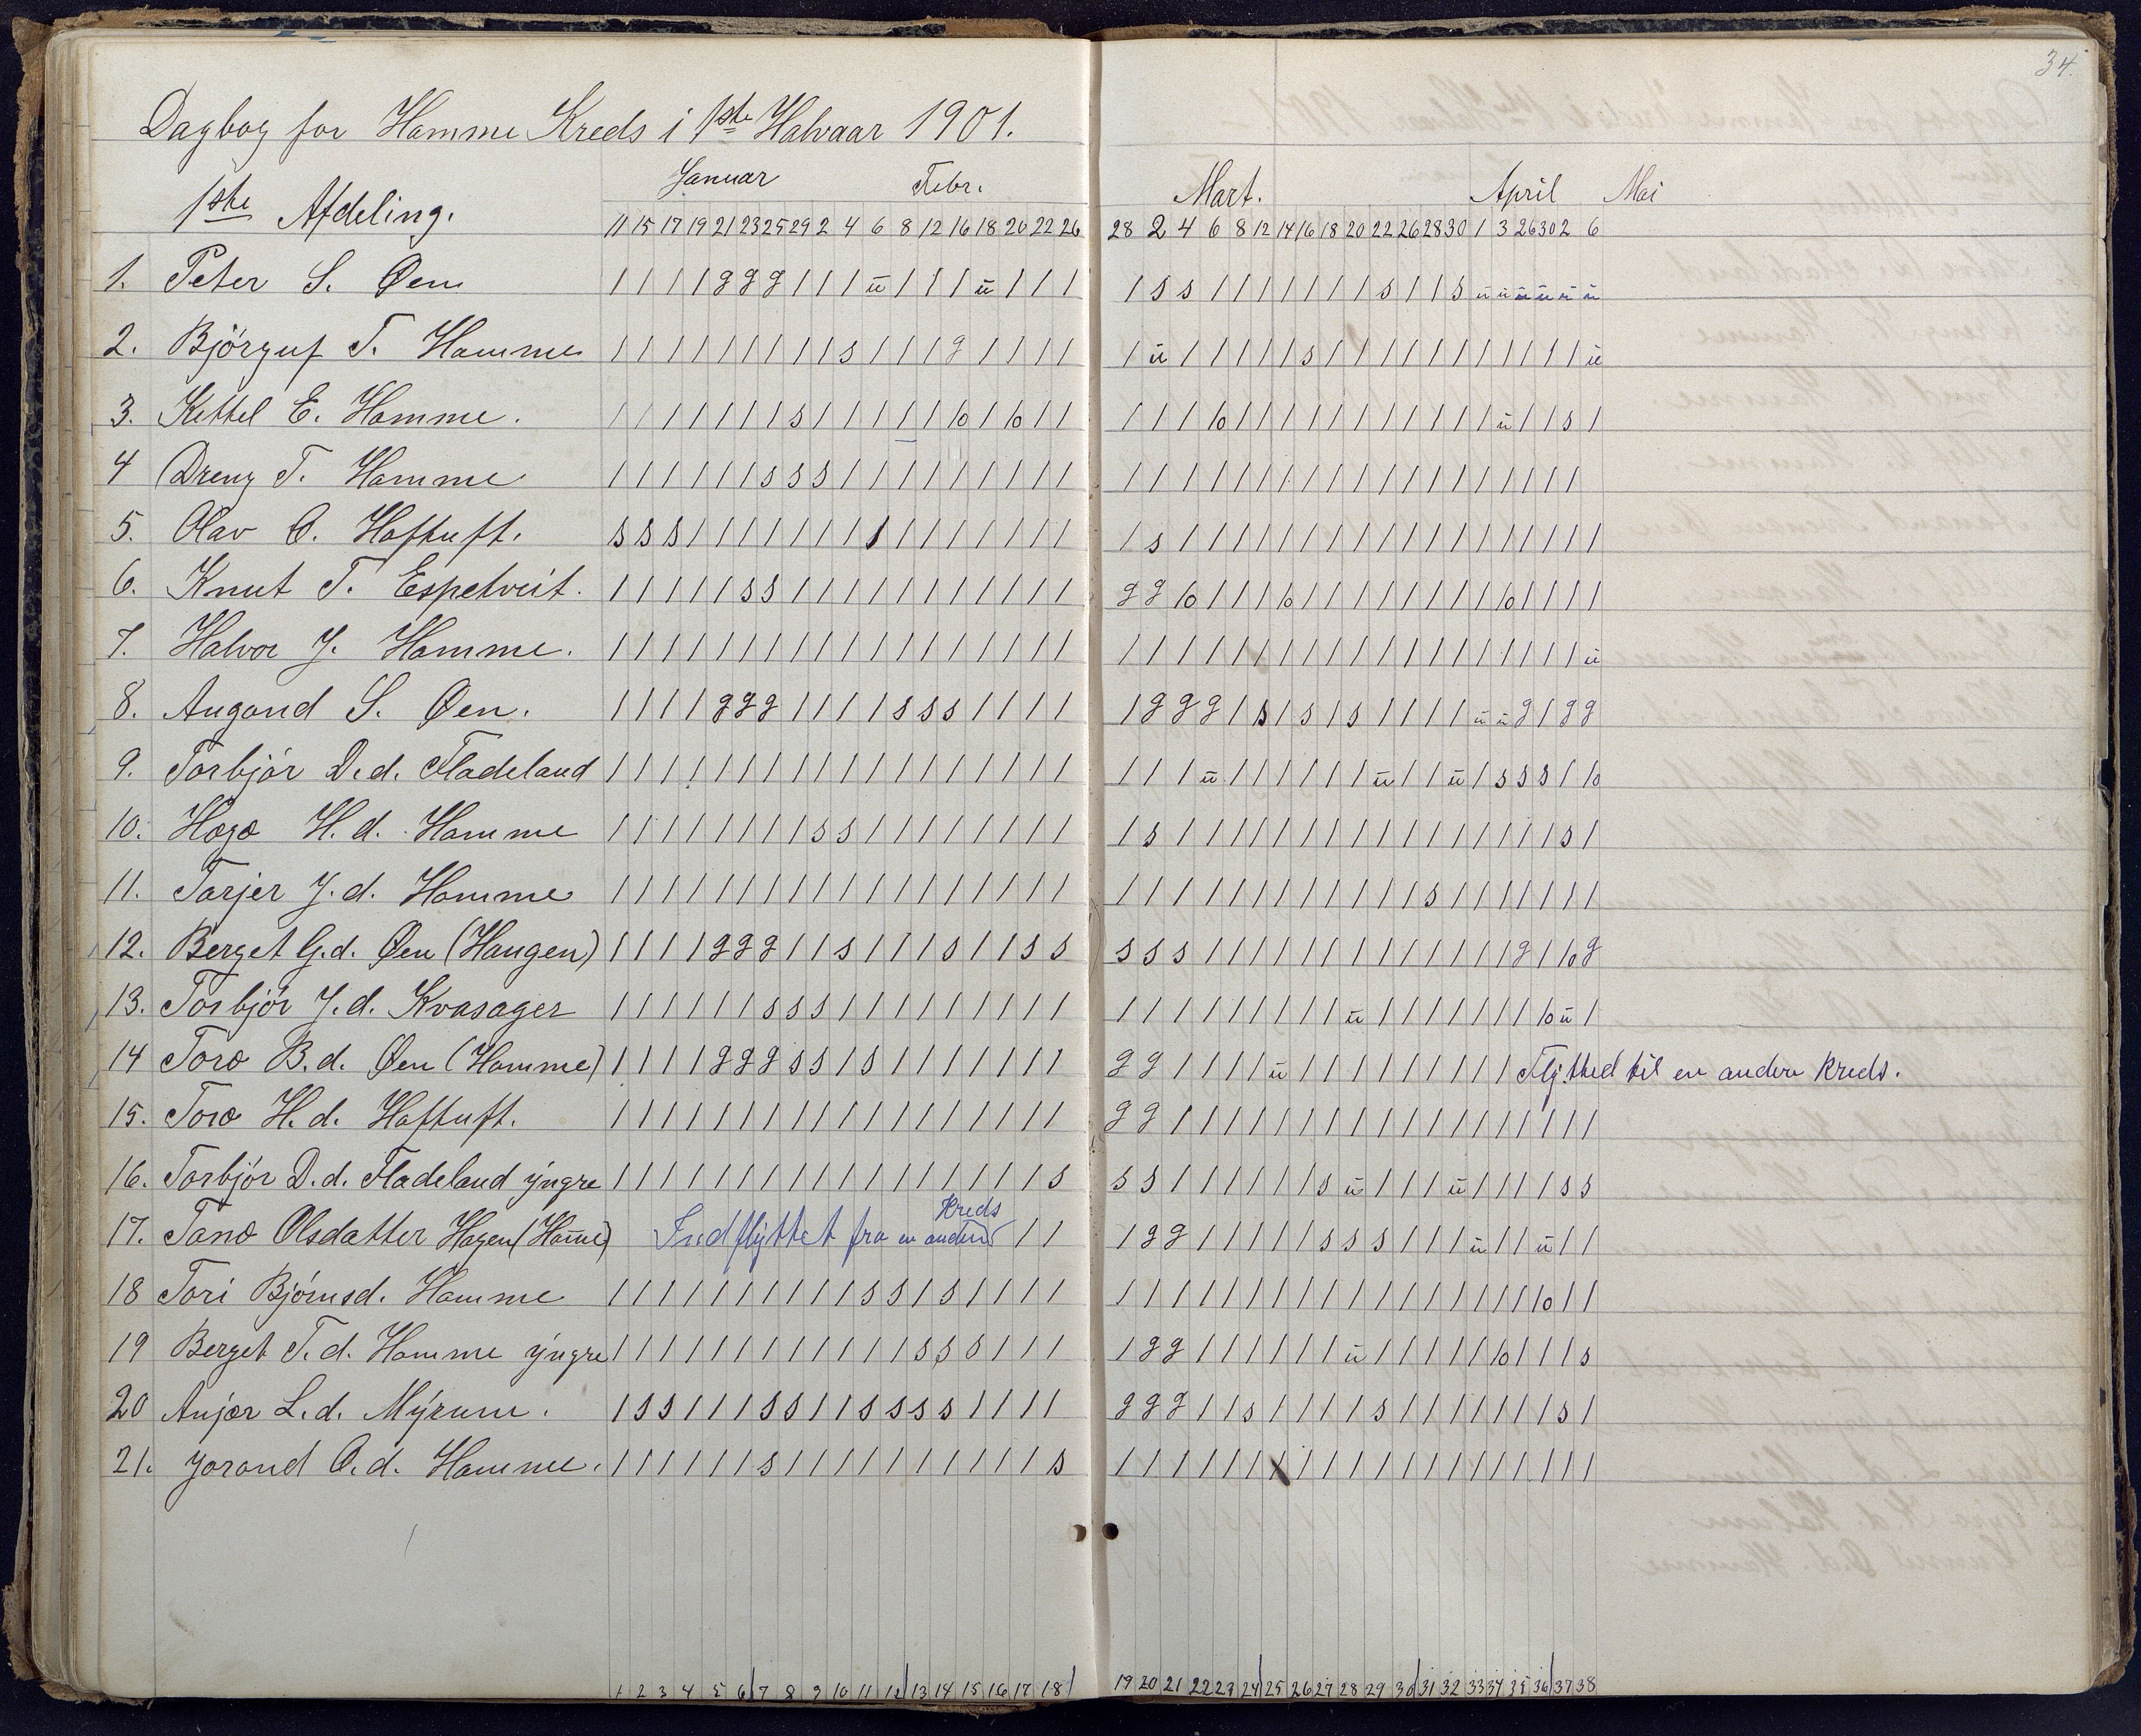 34.
Dagbog for Hamme Kreds i 1ste Halvaar 1901.
Januar Febr. Mart. April Mai
1ste Afdeling. 11 15 17 19 21 23 25 29 2 4 6 8 12 16 18 20 22 26 28 2 4 6 8 12 14 16 18 20 22 26 28 30 1 3 26 30 2 6
1. Peter S. Øen | | | | g g g | | | ü | | | ü | | | | s s | | | | | | | s | | s ü ü ü ü ü ü
2. Bjørguf T. Hamme | | | | | | | | | s | | | g | | | | | ü | | | | | s | | | | | | | | | | | ü
3. Kettel E. Hamme. | | | | | | | s | | | | | 10 | 10 | | | | | 10 | | | | | | | | | | | ü | | s |
4 Dreng T. Hamme | | | | | | s s s | | | | | | | | | | | | | | | | | | | | | | | | | | | |
5. Olav O. Haftuft. s s s | | | | | | | s | | | | | | | | s | | | | | | | | | | | | | | | | | |
6. Knut T. Espetveit. | | | | | s s | | | | | | | | | | | g g 10 | | | 10 | | | | | | | | 10 | | | |
7. Halvor J. Hamme. | | | | | | | | | | | | | | | | | | | | | | | | | | | | | | | | | | | | | ü
8. Augond S. Øen. | | | | g g g | | | | s s s | | | | | g g g | s | s | s | | | | ü ü g | g g
9. Torbjør D.d. Fladeland | | | | | | | | | | | | | | | | | | | | | ü | | | | | | ü | | ü | s s s | 10
10. Hæge H.d. Hamme | | | | | | | | s s | | | | | | | | | s | | | | | | | | | | | | | | | s |
11. Tarjer J.d. Hamme | | | | | | | | | | | | | | | | | | | | | | | | | | | | | | s | | | | | | |
12. Berget G.d. Øen (Haugen) | | | | g g g | | s | | | s | | s s s s s | | | | | | | | | | | | | g | 10 g
13. Torbjør J.d. Kvasager | | | | | | s s s | | | | | | | | | | | | | | | | | | ü | | | | | | 10 ü |
14 Toro B.d. Øen (Hamme) | | | | g g g s s | s | | | | | | | g g | | | | ü | | | | | | | | | Flytted til en anden Kreds.
15. Toro H.d. Haftuft. | | | | | | | | | | | | | | | | | | g g | | | | | | | | | | | | | | | | | |
16. Torbjør D.d. Fladeland yngre | | | | | | | | | | | | | | | | | s s s | | | | | | s ü | | | ü | | | | s s
Kreds
17. Tano Olsdatter Hagen (Hame) Indflyttet fra en anden | | | g g | | | | | s s s | | | ü | | ü | |
18 Tori Bjørnsd. Hamme | | | | | | | | | | s s | s | | | | | | | | | | | | | | | | | | | | | 10 | |
19 Berget T.d. Hamme yngre | | | | | | | | | | | | s s s | | | | g g | | | | | | ü | | | | | 10 | | | s
20 Anjer L.d. Myrum. | s s | | | s s | | s s s s | | | | g g g | | s | | | | s | | | | | | | s |
21. Jorand O.d. Hamme. | | | | | | s | | | | | | | | | | s | | | | | | | | | | | | | | | | | | | |
1 2 3 4 5 6 7 8 9 10 11 12 13 14 15 16 17 18 19 20 21 22 23 24 25 26 27 28 29 30 31 32 33 34 35 36 37 38